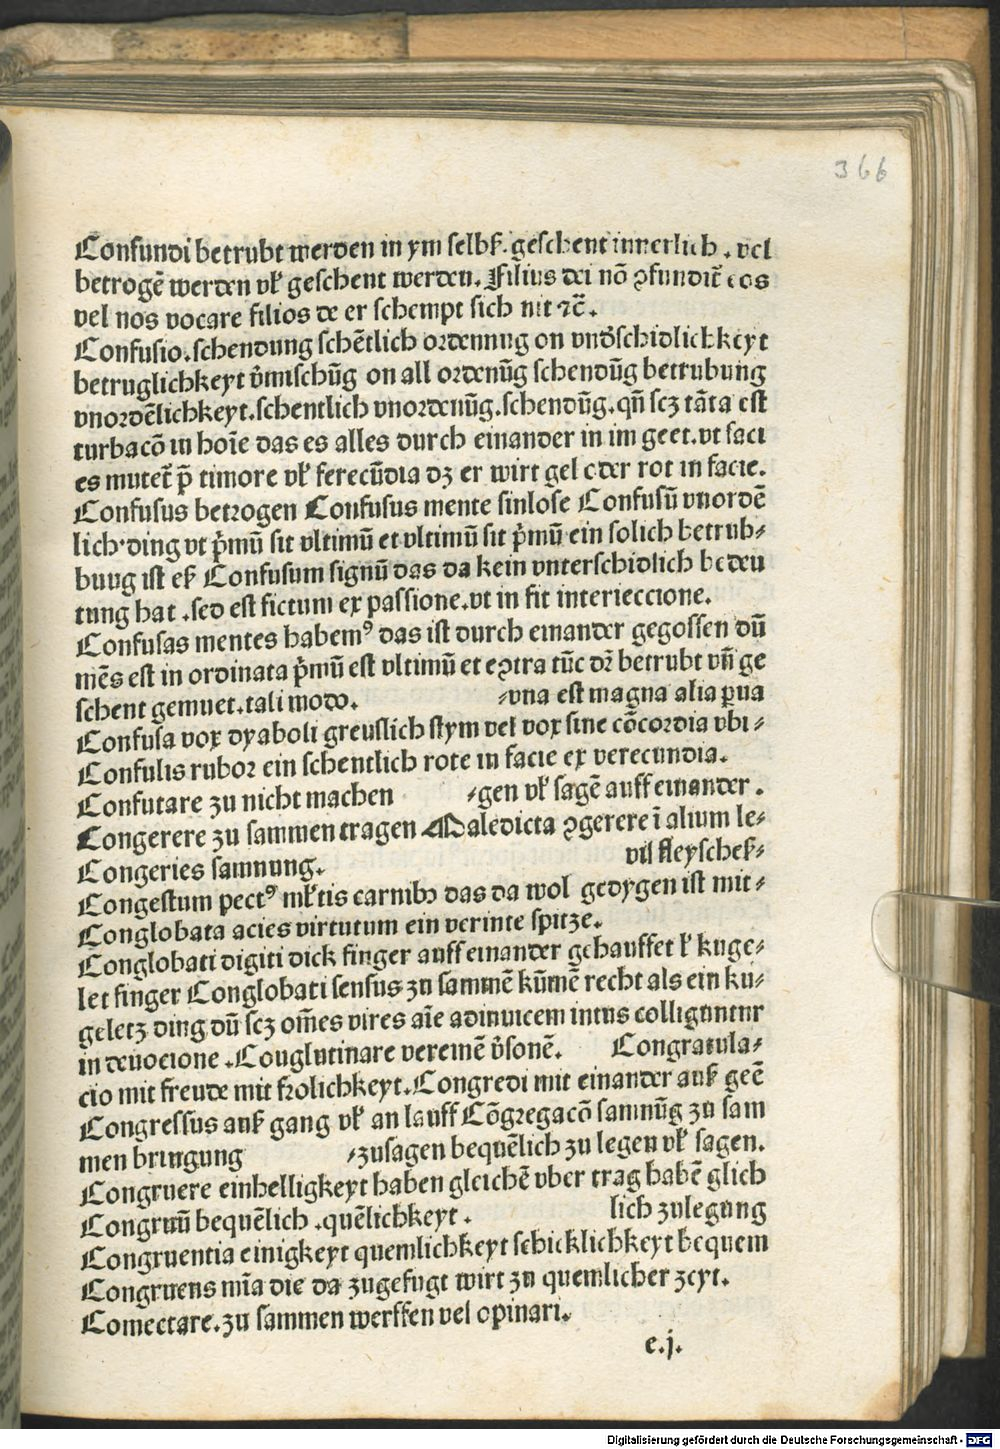 366
Confundi betrubt werden in ym selbß. geschent innerlich . vel
betrogē werden vł geschent werden. Filius dei nō ꝯfundit̄ eos
vel nos vocare filios de er schempt sich nit ⁊c̄.
Confusio.schendung schētlich ordennug on vnd̕schidlichkeyt
betruglichkeyt v̄mischūg on all ordenūg schendūg betrubung
vnordēlichkeyt.schentlich vnordenūg.schendūg.qn̄ scꝫ tāta est
turbacō in hoīe das es alles durch einander in im geet.vt faci
es mutet̄ p̄ timore vł ferecūdia dꝫ er wirt gel oder rot in facie.
Confusus betrogen Confusus mente sinlose Confusū vnordē
lich·ding vt p̄mū sit vltimū et vltimū sit p̄mū ein solich betrub⸗
buug ist eß Confusum signū das da kein vnterschidlich bedeu
tung hat .sed est fictum ex passione.vt in fit interieccione.
Confusas mentes habemꝰ das ist durch einander gegossen dū
mēs est in ordinata p̄mū est vltimū et eꝯtra tūc dr̄ betrubt vn̄ ge
schent gemuet.tali modo. ⸗vna est magna alia ꝑua
Confusa vox dyaboli greuslich stym vel vox sine cōcordia vbi⸗
Confulis rubor ein schentlich rote in facie ex verecundia.
Confutare zu nicht machen ⸗gen vł sagē auff einander .
Congerere zu sammen tragen Maledicta ꝯgerere ī alium le⸗
Congeries samnung. vil fleyscheß⸗
Congestum pectꝰ młtis carnibꝫ das da wol gedygen ist mit⸗
Conglobata acies virtutum ein verinte spitze.
Conglobati digiti dick finger auff einander gehauffet ł kuge⸗
let finger Conglobati sensus zu sammē kūmē recht als ein ku⸗
geletz ding dū scꝫ om̄es vires aīe adinuicem intus colliguntur
in deuocione .Couglutinare vereinē v̕sonē. Congratula⸗
cio mit freude mit frolichkeyt.Congredi mit einander auß geē
Congressus auß gang vł an lauff Cōgregacō samnūg zu sam
men bringung ⸗zusagen bequēlich zu legen vł sagen.
Congruere einhelligkeyt haben gleichē vber trag habē glich
Congruū bequēlich .quēlichkeyt . lich zulegung
Congruentia einigkeyt quemlichkeyt schicklichkeyt bequem
Congruens mīa die da zugefugt wirt zu quemlicher zeyt.
Comectare.zu sammen werffen vel opinari.
e.j.
Digitalisierung gefördert durch die Deutsche Forschungsgemeinschaft - DFG